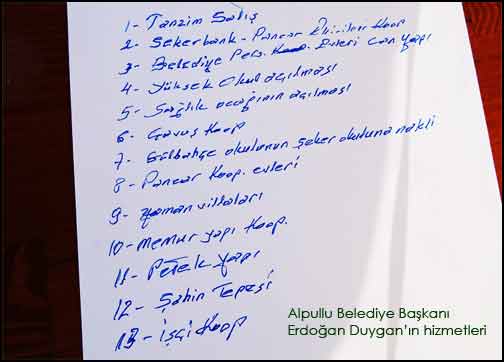 1- Tanzim Satış
2- Şekerbank - Pancar Ekiciler Koop
3- Belediye Pers. Koop. Evleri Can yapı
4- Yüksek Okul açılması
5- Sağlık ocağının açılması
6- Çavuş Koop
7- Gülbahçe okulunun şeker okuluna nakli
8- Pancar Koop. evleri
9- yaman villaları
10- memur yapı Koop.
11- Petek yapı
12- Şahin Tepesi
13- işçi Koop
Alpullu Belediye Başkanı
Erdoğan Duygan'ın hizmetleri